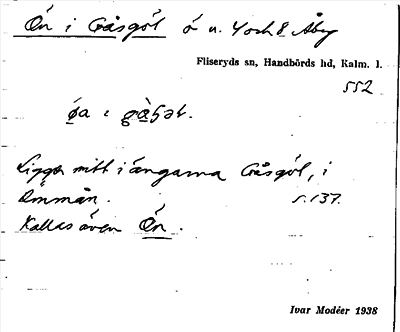 Ön i Gåsgöl ö n. 4 och 8 Åby
Fliseryds sn, Handbörds hd, Kalm. l.
552
Ligger mitt i ängarna Gåsgöl, i
Emmån. s. 137.
Kallas även Ön.
Ivar Modéer 1938